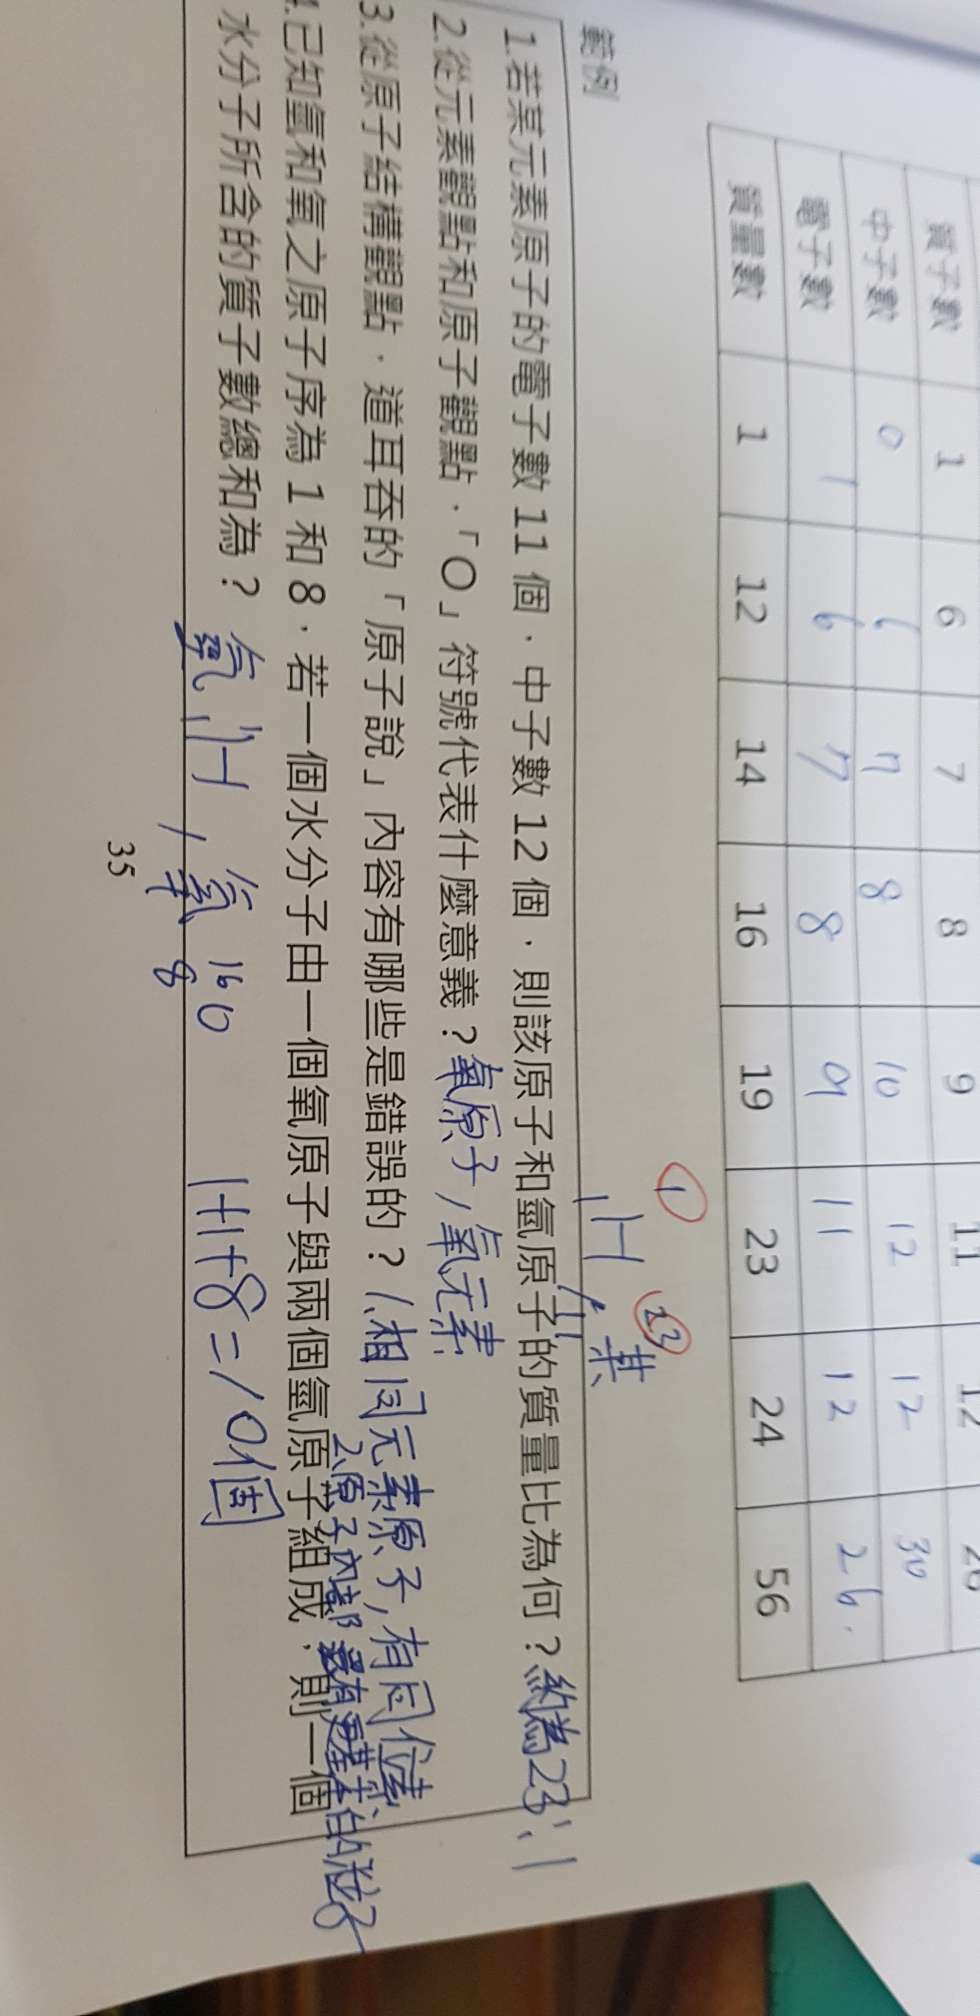 質子數 1 6 7 8 9 11 12 26
中子數 0 6 7 8 10 12 12 30
電子數 1 6 7 8 9 11 12 26
質量數 1 12 14 16 19 23 24 56
① ㉓
1H 某
範例
1.若某元素原子的電子數 11 個，中子數 12 個，則該原子和氫原子的質量比為何？約為23:1
2.從元素觀點和原子觀點，「O」符號代表什麼意義？氧原子，氧元素
3.從原子結構觀點，道耳吞的「原子說」內容有哪些是錯誤的？1.相同元素原子，有同位素
2.原子內部還有更基本的粒子
4.已知氫和氧之原子序為 1 和 8，若一個水分子由一個氧原子與兩個氫原子組成，則一個
水分子所含的質子數總和為？
氫 1 1H，氧 16 8 O 1+1+8=10個
35